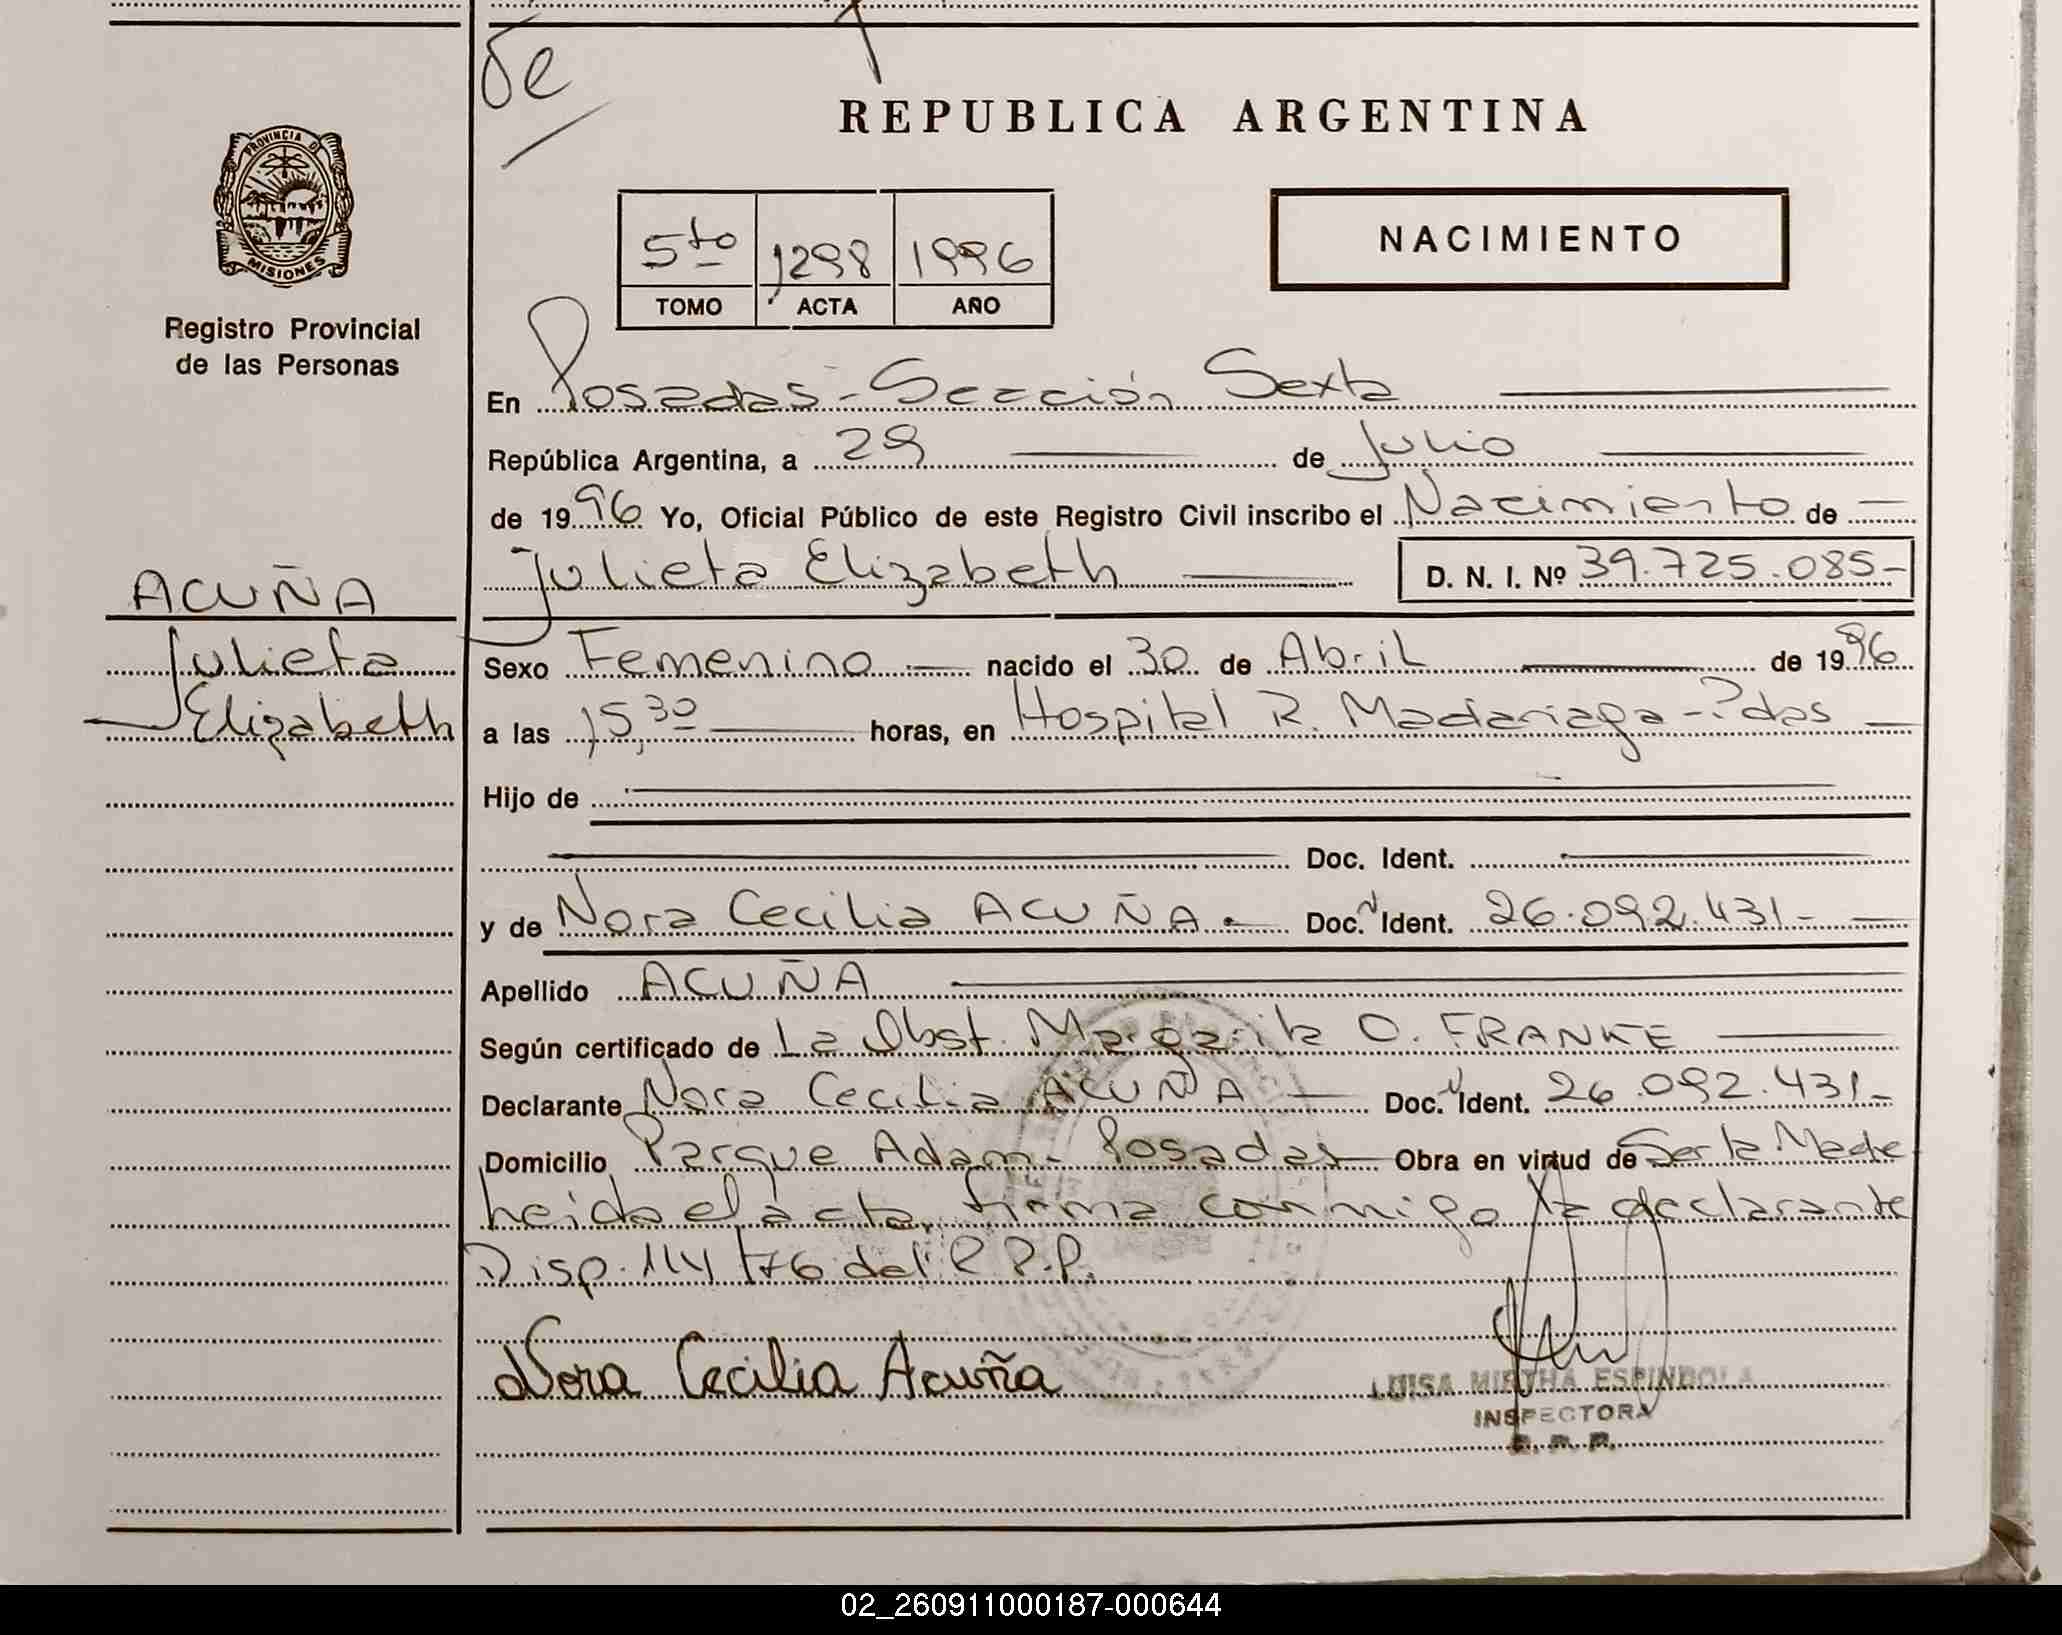 REPUBLICA ARGENTINA
PROVINCIA D
MISIONES
Registro Provincial
de las Personas
5to 1298 1996
TOMO ACTA AÑO
NACIMIENTO
En Posadas - Sección Sexta
República Argentina, a 29 de Julio
de 1996 Yo, Oficial Público de este Registro Civil inscribo el Nacimiento de
Julieta Elizabeth D. N. I. Nº 39.725.085-
ACUÑA
Julieta
Elizabeth
Sexo Femenino nacido el 30 de Abril de 1996
a las 15,30 horas, en Hospital R. Madariaga - Pdas
Hijo de
Doc. Ident.
y de Nora Cecilia ACUÑA. Doc. Ident. 26.092.431-
Apellido ACUÑA
Según certificado de La Obst. Margarita O. FRANKE
Declarante Nora Cecilia ACUÑA Doc. Ident. 26.092.431-
Domicilio Parque Adam - Posadas Obra en virtud de Ser la Madre
Leida el acta, firma conmigo la declarante
Disp. 114 del R.P.P.
Nora Cecilia Acuña
LUISA MIRTHA ESPINDOLA
INSPECTORA
R. P. P.
02_260911000187-000644